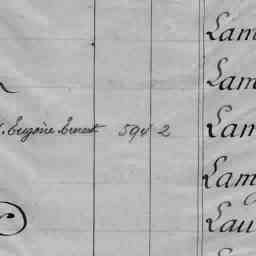 Lam
Lam
Eugène Ernest 594 2 Lam
Lam
Lau